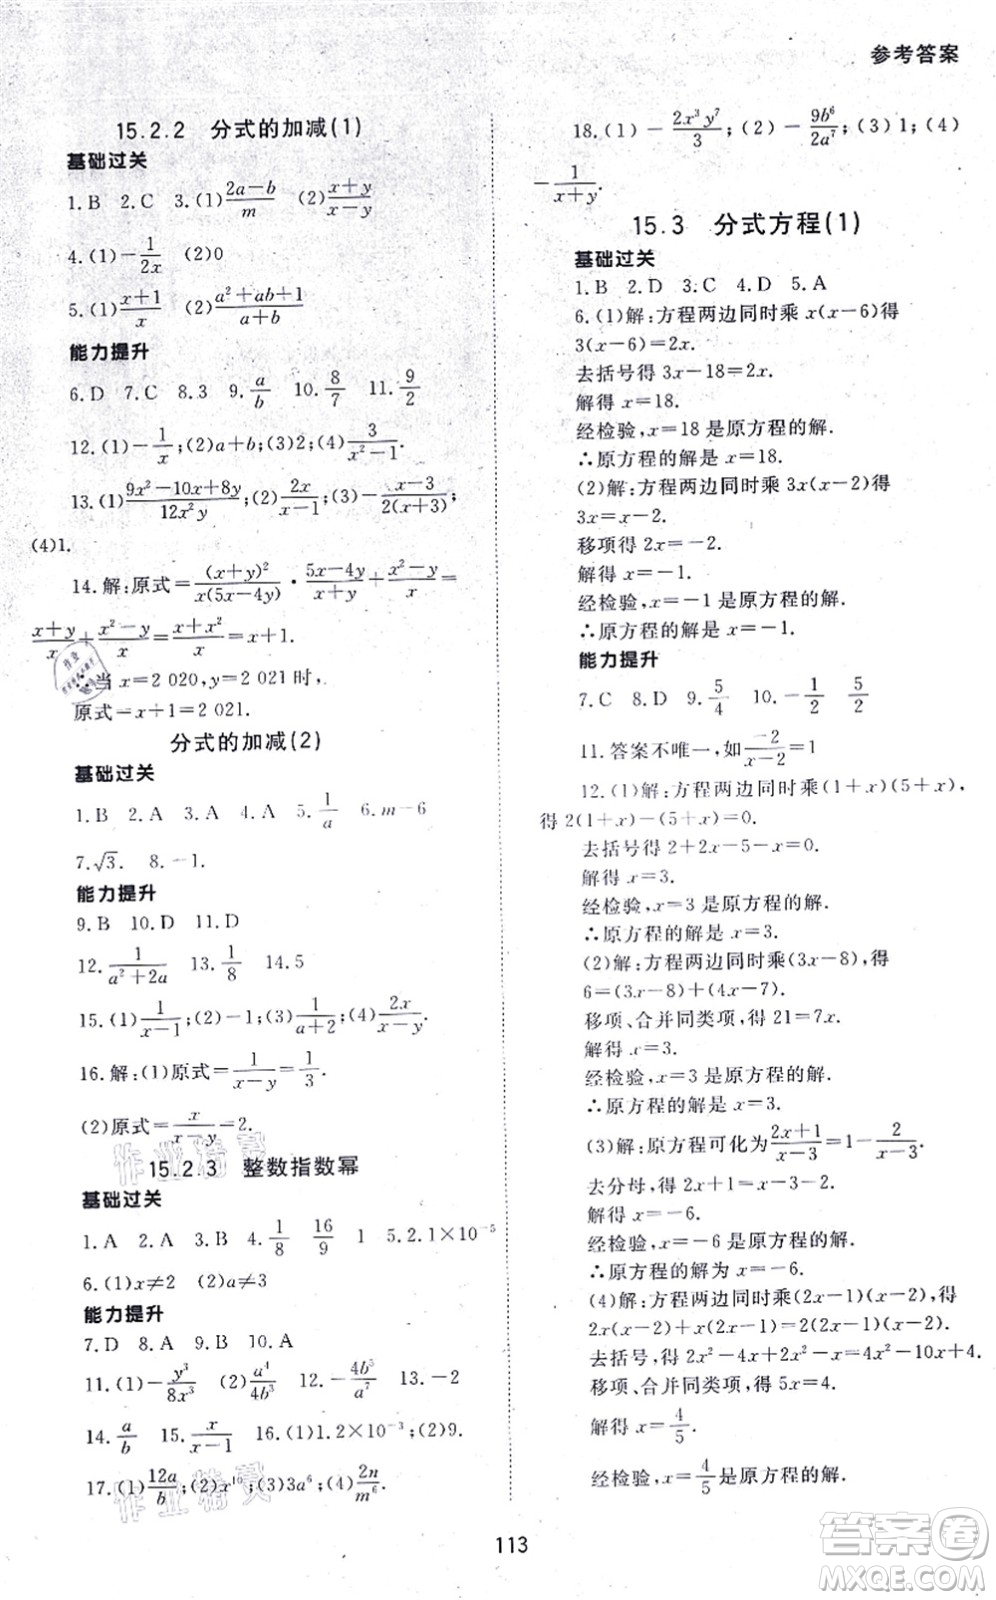 参考答案
15.2.2 分式的加减(1)
基础过关
1.B 2.C 3.(1)\frac{2a-b}{m} (2)\frac{x+y}{x-y}
4.(1)-\frac{1}{2x} (2)0
5.(1)\frac{x+1}{x} (2)\frac{a^2+ab+1}{a+b}
能力提升
6.D 7.C 8.3 9.\frac{a}{b} 10.\frac{8}{7} 11.\frac{9}{2}
12.(1)-\frac{1}{x};(2)a+b;(3)2;(4)\frac{3}{x^2-1}.
13.(1)\frac{9x^2-10x+8y}{12x^2y};(2)\frac{2x}{x-1};(3)-\frac{x-3}{2(x+3)};
(4)1.
14.解:原式=\frac{(x+y)^2}{x(5x-4y)}·\frac{5x-4y}{x+y}+\frac{x^2-y}{x}=
\frac{x+y}{x}+\frac{x^2-y}{x}=\frac{x+x^2}{x}=x+1.
∴当x=2 020,y=2 021时,
原式=x+1=2 021.
分式的加减(2)
基础过关
1.B 2.A 3.A 4.A 5.\frac{1}{a} 6.m-6
7.\sqrt{3}. 8.-1.
能力提升
9.B 10.D 11.D
12.\frac{1}{a^2+2a} 13.\frac{1}{8} 14.5
15.(1)\frac{1}{x-1};(2)-1;(3)\frac{1}{a+2};(4)\frac{2x}{x-y}.
16.解:(1)原式=\frac{1}{x-y}=\frac{1}{3}.
(2)原式=\frac{x}{x-y}=2.
15.2.3 整数指数幂
基础过关
1.A 2.A 3.B 4.\frac{1}{8} \frac{16}{9} 1 5.2.1×10^{-5}
6.(1)x≠2 (2)a≠3
能力提升
7.D 8.A 9.B 10.A
11.(1)-\frac{y^3}{8x^3} (2)\frac{a^4}{4b^3} 12.-\frac{4b^5}{a^7} 13.-2
14.\frac{a}{b} 15.\frac{x}{x-1} 16.(1)1.2×10^{-3};(2)6.
17.(1)\frac{12a}{b};(2)x^{10};(3)3a^6;(4)\frac{2n}{m^6}.
18.(1)-\frac{2x^3y^7}{3};(2)-\frac{9b^6}{2a^7};(3)1;(4)
-\frac{1}{x+y}.
15.3 分式方程(1)
基础过关
1.B 2.D 3.C 4.D 5.A
6.(1)解:方程两边同时乘x(x-6)得
3(x-6)=2x.
去括号得3x-18=2x.
解得x=18.
经检验,x=18是原方程的解.
∴原方程的解是x=18.
(2)解:方程两边同时乘3x(x-2)得
3x=x-2.
移项得2x=-2.
解得x=-1.
经检验,x=-1是原方程的解.
∴原方程的解是x=-1.
能力提升
7.C 8.D 9.\frac{5}{4} 10.-\frac{1}{2} \frac{5}{2}
11.答案不唯一,如\frac{-2}{x-2}=1
12.(1)解:方程两边同时乘(1+x)(5+x),
得2(1+x)-(5+x)=0.
去括号得2+2x-5-x=0.
解得x=3.
经检验,x=3是原方程的解.
∴原方程的解是x=3.
(2)解:方程两边同时乘(3x-8),得
6=(3x-8)+(4x-7).
移项、合并同类项,得21=7x.
解得x=3.
经检验,x=3是原方程的解.
∴原方程的解是x=3.
(3)解:原方程可化为\frac{2x+1}{x-3}=1-\frac{2}{x-3}.
去分母,得2x+1=x-3-2.
解得x=-6.
经检验,x=-6是原方程的解.
∴原方程的解为x=-6.
(4)解:方程两边同时乘(2x-1)(x-2),得
2x(x-2)+(x-1)(2x-1)=2(2x-1)(x-2).
去括号,得2x^2-4x+2x^2-3x+1=4x^2-10x+4.
移项、合并同类项,得5x=4.
解得x=\frac{4}{5}.
经检验,x=\frac{4}{5}是原方程的解.
113
作业精灵
作业精灵
答案圈
MXQE.COM